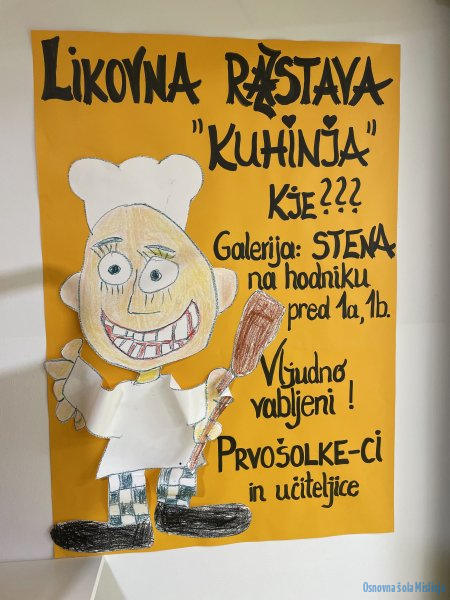 LIKOVNA RAZSTAVA
"KUHINJA"
KJE???
Galerija: STENA
na hodniku
pred 1a, 1b.
Vljudno
vabljeni!
PRVOŠOLKE-CI
in učiteljice
Osnovna šola